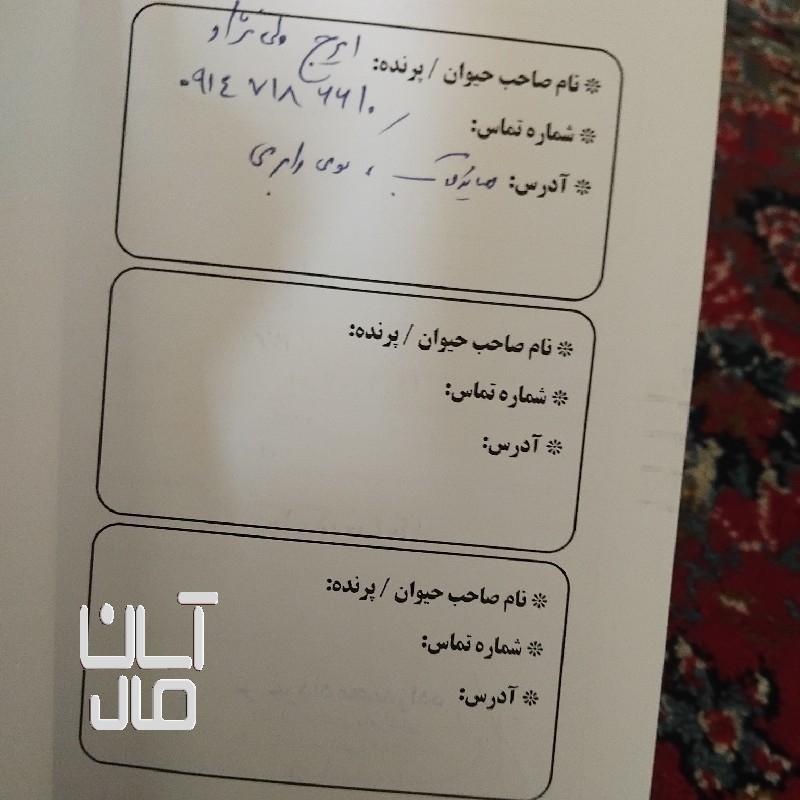 ❊ نام صاحب حیوان / پرنده: ایرج ولی نژاد
❊ شماره تماس: ۰۹۱۴ ۷۱۸ ۶۶۱۰
❊ آدرس:
❊ نام صاحب حیوان / پرنده:
❊ شماره تماس:
❊ آدرس:
❊ نام صاحب حیوان / پرنده:
❊ شماره تماس:
❊ آدرس:
آسان
مال